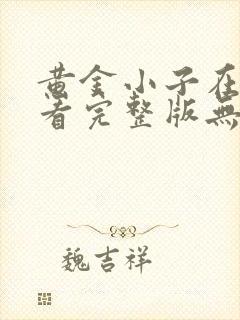 黄金小子在
看完整版無
魏吉祥